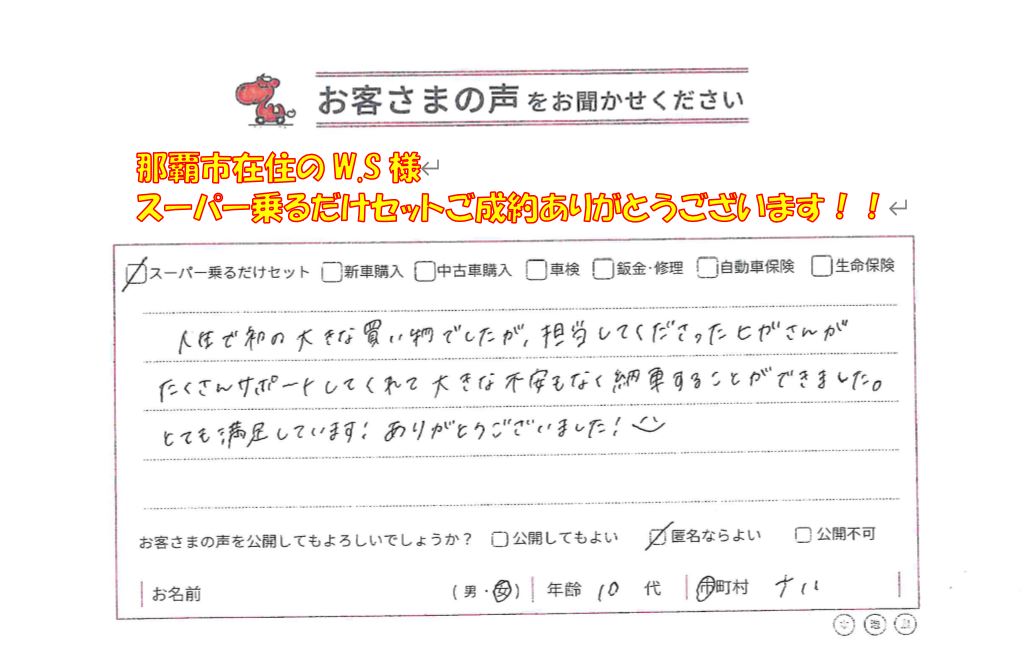 お客さまの声をお聞かせください
那覇市在住のW.S様↵
スーパー乗るだけセットご成約ありがとうございます！！↵
スーパー乗るだけセット 新車購入 中古車購入 車検 鈑金・修理 自動車保険 生命保険
人生で初の大きな買い物でしたが、担当してくださったヒガさんが
たくさんサポートしてくれて大きな不安もなく納車することができました。
とても満足しています! ありがとうございました!
お客さまの声を公開してもよろしいでしょうか？ 公開してもよい 匿名ならよい 公開不可
お名前 (男・女) 年齢 10 代 市町村 ナハ